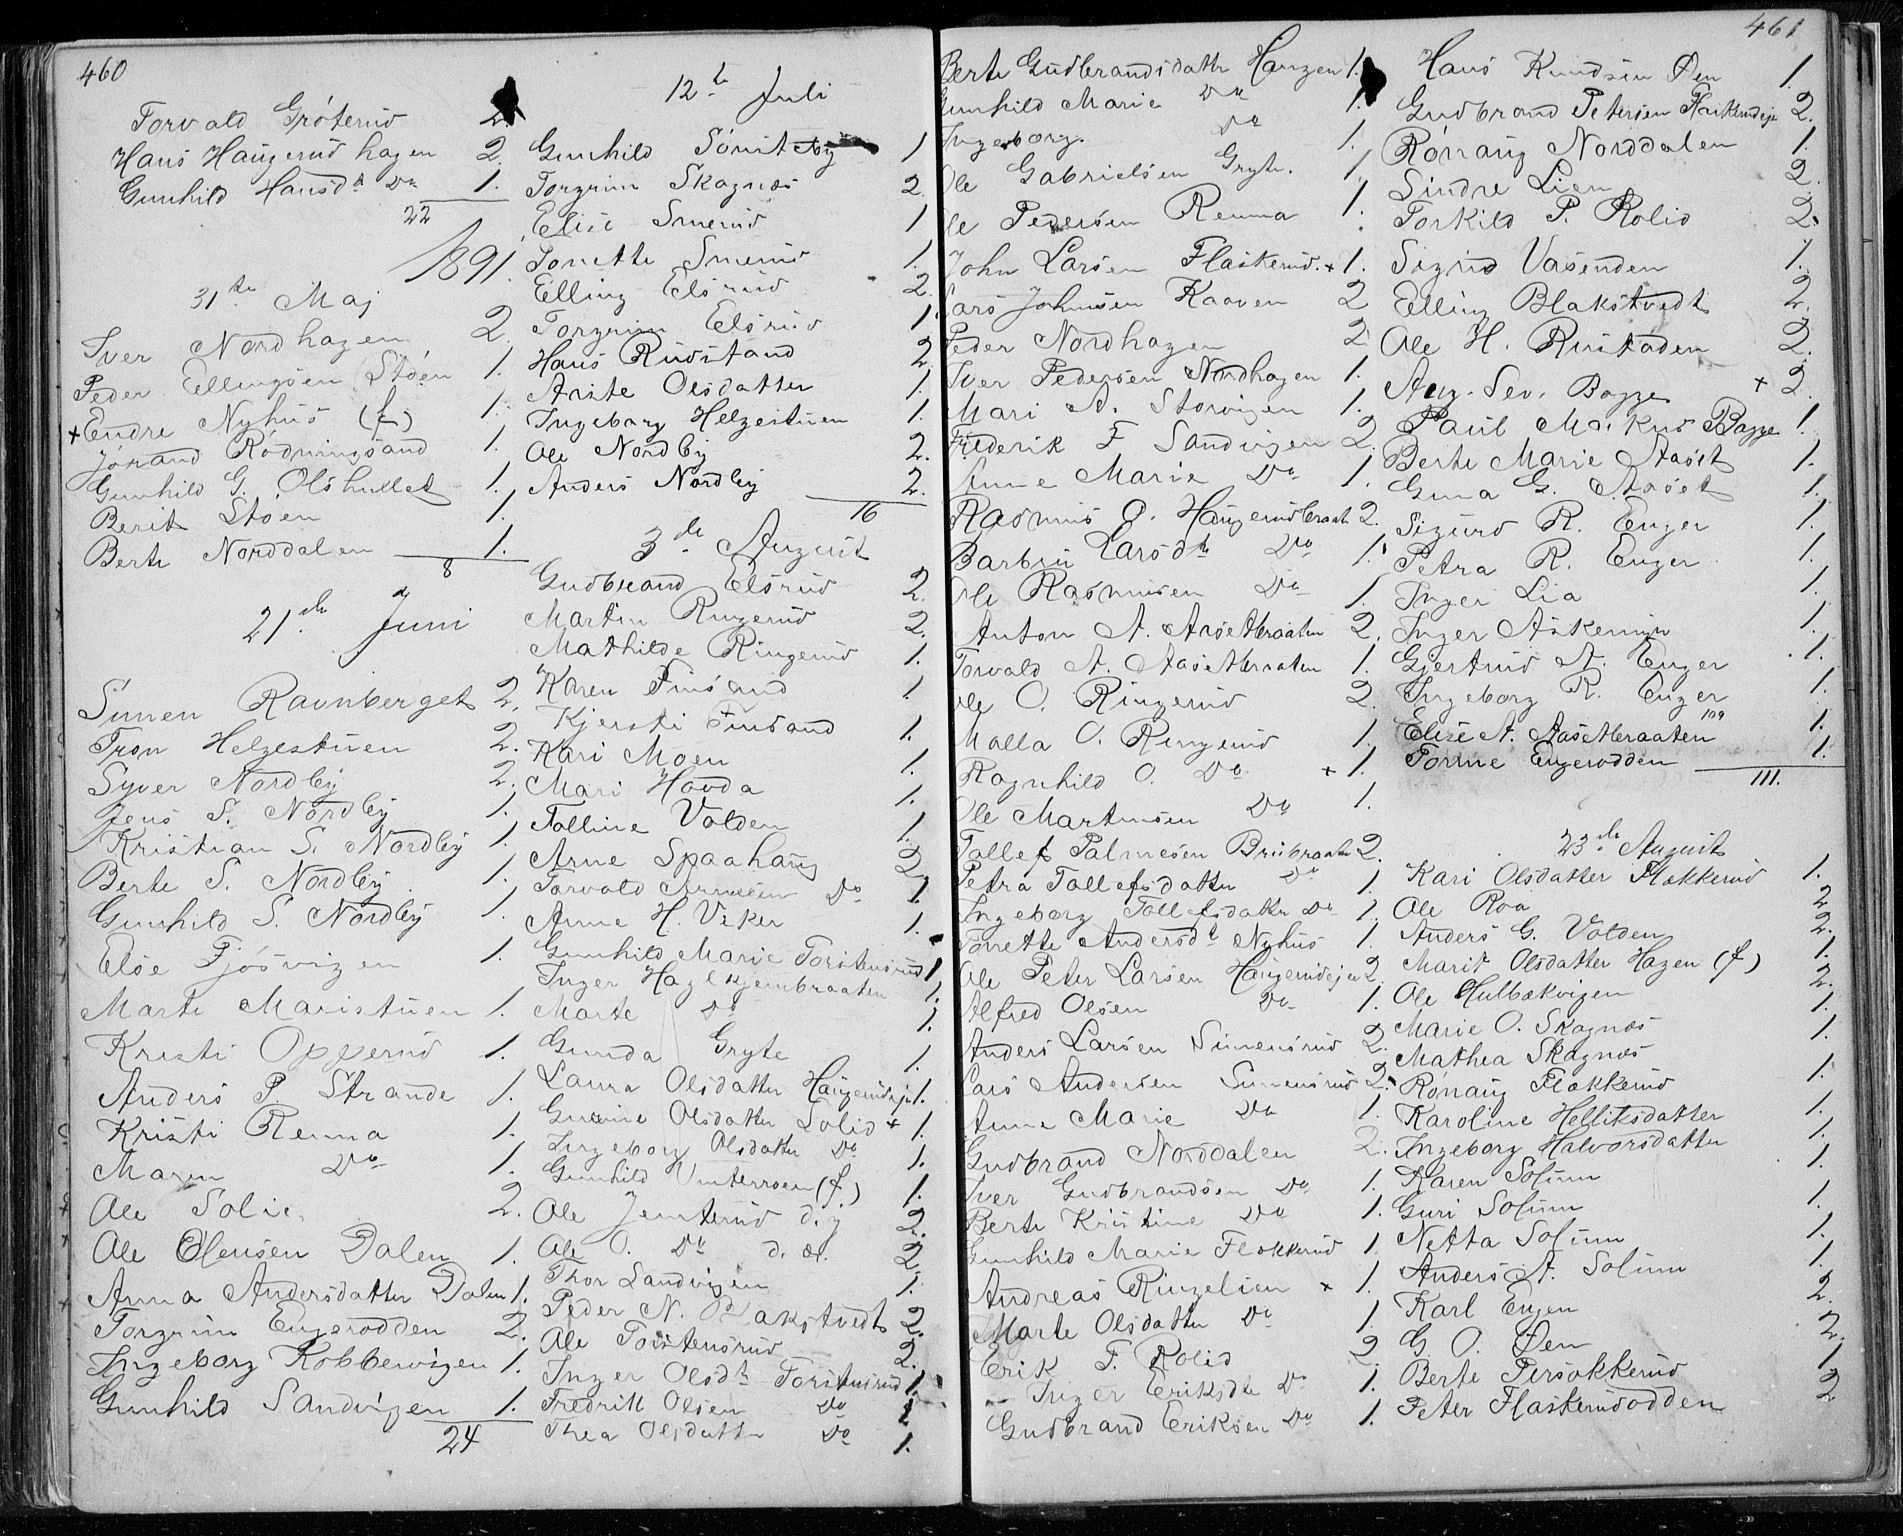 460
Torvald Gróterud 2.
Hans Haugerud hagen 2.
Gunhild Hansdt Do 1.
22
1891.
31te Maj
Iver Nordhagen 2.
Peder Ellingsen Stóen 1.
+ Endre Nyhus (f) 1.
Jórand Ródningsand 1.
Gunhild G. Olshullet 1.
Berit Stóen 1.
Berte Norddalen 1.
8
21de Juni
Simen Ravnberget 2.
Tron Helgestuen 2.
Syver Nordby 2.
Jens S. Nordby 1.
Kristian S. Nordby 1.
Berte S. Nordby 1.
Gunhild S. Nordby 1.
Else Fjósvigen 1.
Marte Maristuen 1.
Kristi Opperud 1.
Anders P. Strande 1.
Kristi Renna 1.
Maren Do 1.
Ole Solie 2.
Ole Olensen Dalen 1.
Anna Andersdatter Dalen 1.
Torgrim Engerodden 2.
Ingeborg Kobbervigen 1.
Gunhild Sandvigen 1.
24
12te Juli
Gunhild Sónsteby 1
Torgrim Skagnæs 2
Elise Smerud 1
Tonette Smerud 1.
Elling Elsrud 2.
Torgrim Elsrud 1
Hans Rudstand 2.
Arste Olsdatter 1.
Ingeborg Helgestuen 1.
Ole Nordby 2.
Anders Nordby 2.
16
3de August
Gudbrand Elsrud 2.
Martin Ringerud 2.
Mathilde Ringerud 1.
Karen Finsand 1
Kjersti Finsand 1.
Kari Moen 1.
Mari Hovda 1.
Tolline Volden 1.
Arne Spaahaug 2.
Torvald Arnesen Do 1.
Anne H. Viker 1.
Gunhild Marie Torstensrud 1
Inger Haglkjernbraaten 1.
Marte Do 1.
Gunda Gryte 1.
Laura Olsdatter Haugerudeje 1.
Gurine Olsdatter Solid + 1.
Ingeborg Olsdatter Do 1.
Gunhild Vinterroen (f.) 1.
Ole Jemterud d. y 2.
Ole O. Do d. æ. 2.
Thor Sandvigen 1.
Peder N. Blakstvedt 2.
Ole Torstensrud 2.
Inger Olsdt Torstensrud 1.
Fredrik Olsen Do 1
Thea Olsdatter Do 1.
461
Berte Gudbrandsdatter Haugen 1.
Gunhild Marie Do 1.
Ingeborg. Do 1.
Ole Gabrielsen Gryte. 1.
Ole Pedersen Renna 1.
John Larsen Flaskerud. + 1.
Lars Johnsen Kaaven 2
Peder Nordhagen 2
Iver Pedersen Nordhagen 1.
Mari A. Storvigen 1.
Frederik F Sandvigen 2
Anne Marie Do 1.
Rasmus O. Haugerudbraat. 2.
Barbru Larsdt Do 1.
Ole Rasmusen Do 1.
Anton A. Aasetbraaten 2.
Torvald A. Aasetbraaten 1.
Ole O. Ringerud 2
Malla O. Ringerud 1.
Ragnhild O. Do + 1.
Ole Martinsen Do 1.
Tollef Palmesen Brubraaten 2.
Petra Tollefsdatter Do 1
Ingeborg Tollefsdatter Do 1.
Tonette Andersdt Nyhus 1.
Ole Peter Larsen Haugerudeje 2.
Alfred Olsen Do 1.
Anders Larsen Simensrud 2.
Lars Andersen Simensrud 2.
Anne Marie Do 1.
Gudbrand Norddalen 2.
Iver Gudbrandsen Do 1.
Berte Kristine Do 1.
Gunhild Marie Flokkerud 1
Andreas Ringelien + 1.
Marte Olsdatter Do 1.
Erik T. Rolid 2
Inger Eriksdt Do 1.
Gudbrand Eriksen Do 1.
Hans Knudsen Óen 1.
Gudbrand Petersen Flaskerudeje 2.
Rónaug Norddalen 1.
Sindre Lien 2.
Torkild P. Rolid 2.
Sigrid Vasenden 1.
Elling Blakstvedt 2.
Ole H. Rustaden 2.
Aug. Sev. Bagge + 2.
Paul Markus Bagge 1.
Berte Marie Aaset 1.
Gina G. Aaset 1.
Sigurd R. Enger 1.
Petra R. Enger 1.
Inger Lia 1.
Inger Askerud 1.
Gjertrud A. Enger 1.
Ingeborg R. Enger 1.
109
Elise A. Aasetbraaten 1.
Tomine Engerodden 1.
111.
23de August
Kari Olsdatter Flokkerud 1.
Ole Roa 2
Anders G. Volden 2.
Marit Olsdatter Hagen (f) 1.
Ole Hulbækvigen 2.
Marie O. Skagnæs 1.
Mathea Skagnæs 1.
Rónaug Flokkerud 1.
Karoline Helliksdatter 1.
Ingeborg Halvorsdatter 1.
Karen Solum 1.
Guri Solum 1.
Netta Solum 1.
Anders A. Solum 1.
Karl Engen 2.
G. O. Óen 2.
Berte Persokkerud 1
Peter Flaskerudodden 2